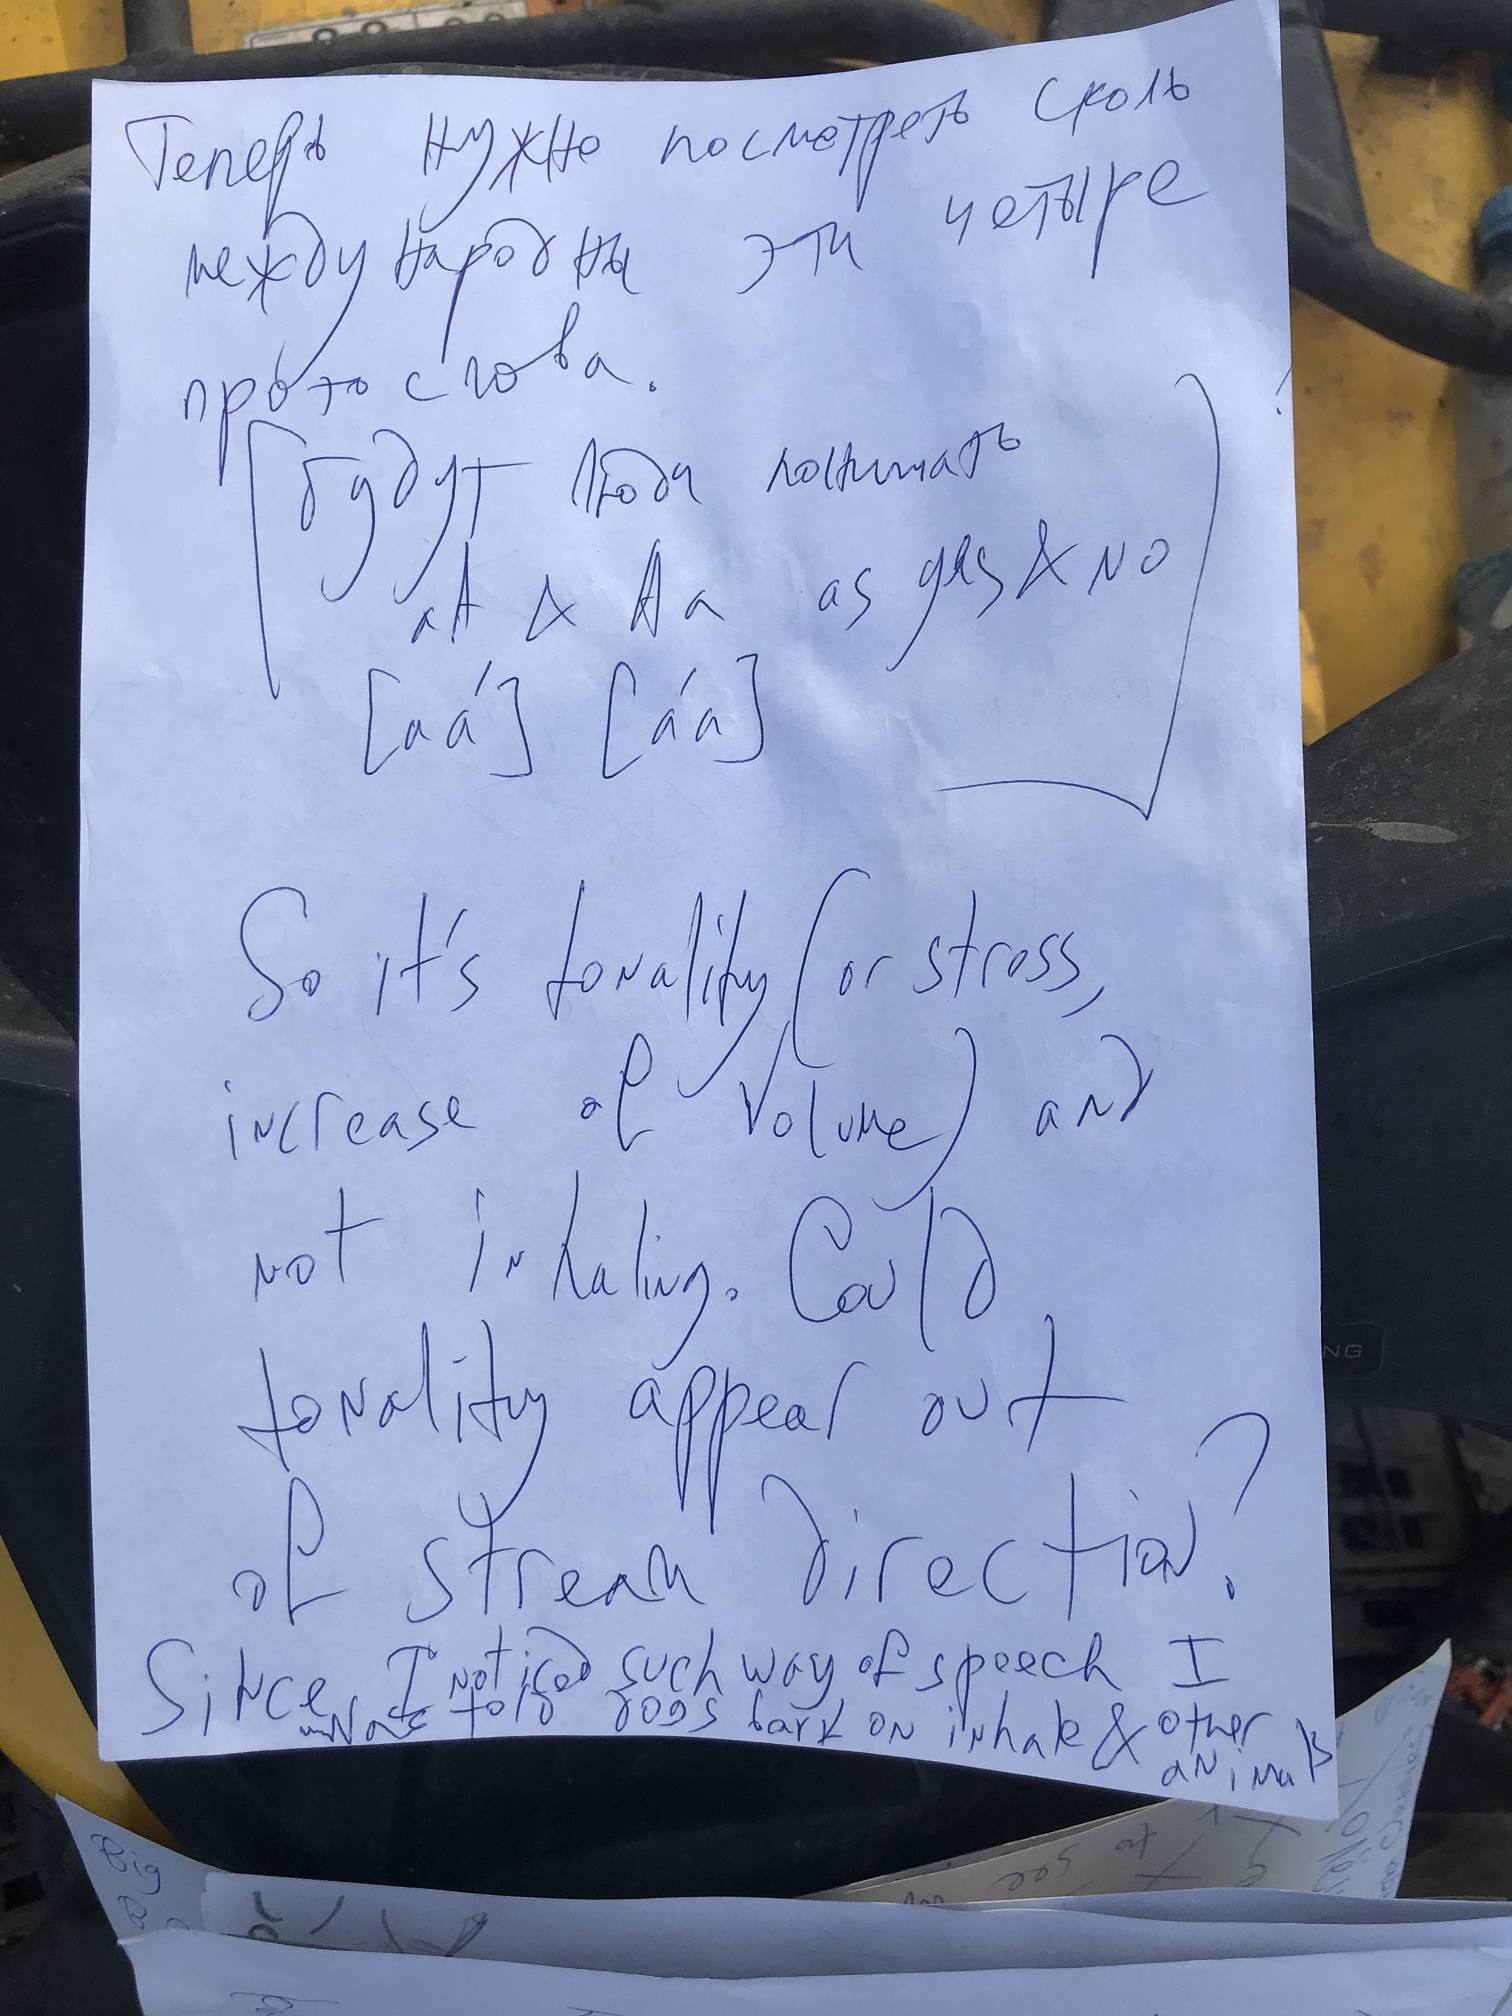 Теперь нужно посмотреть сколь
международны эти четыре
протослова.
будут люди понимать ?
aA & Aa as yes & no
[aá] [áa]
So it's tonality (or stress,
increase of volume) and
not inhaling. Could
tonality appear out
of stream direction?
Since I noticed such way of speech I
was told dogs bark on inhale & other
animals
NG
Big
to see